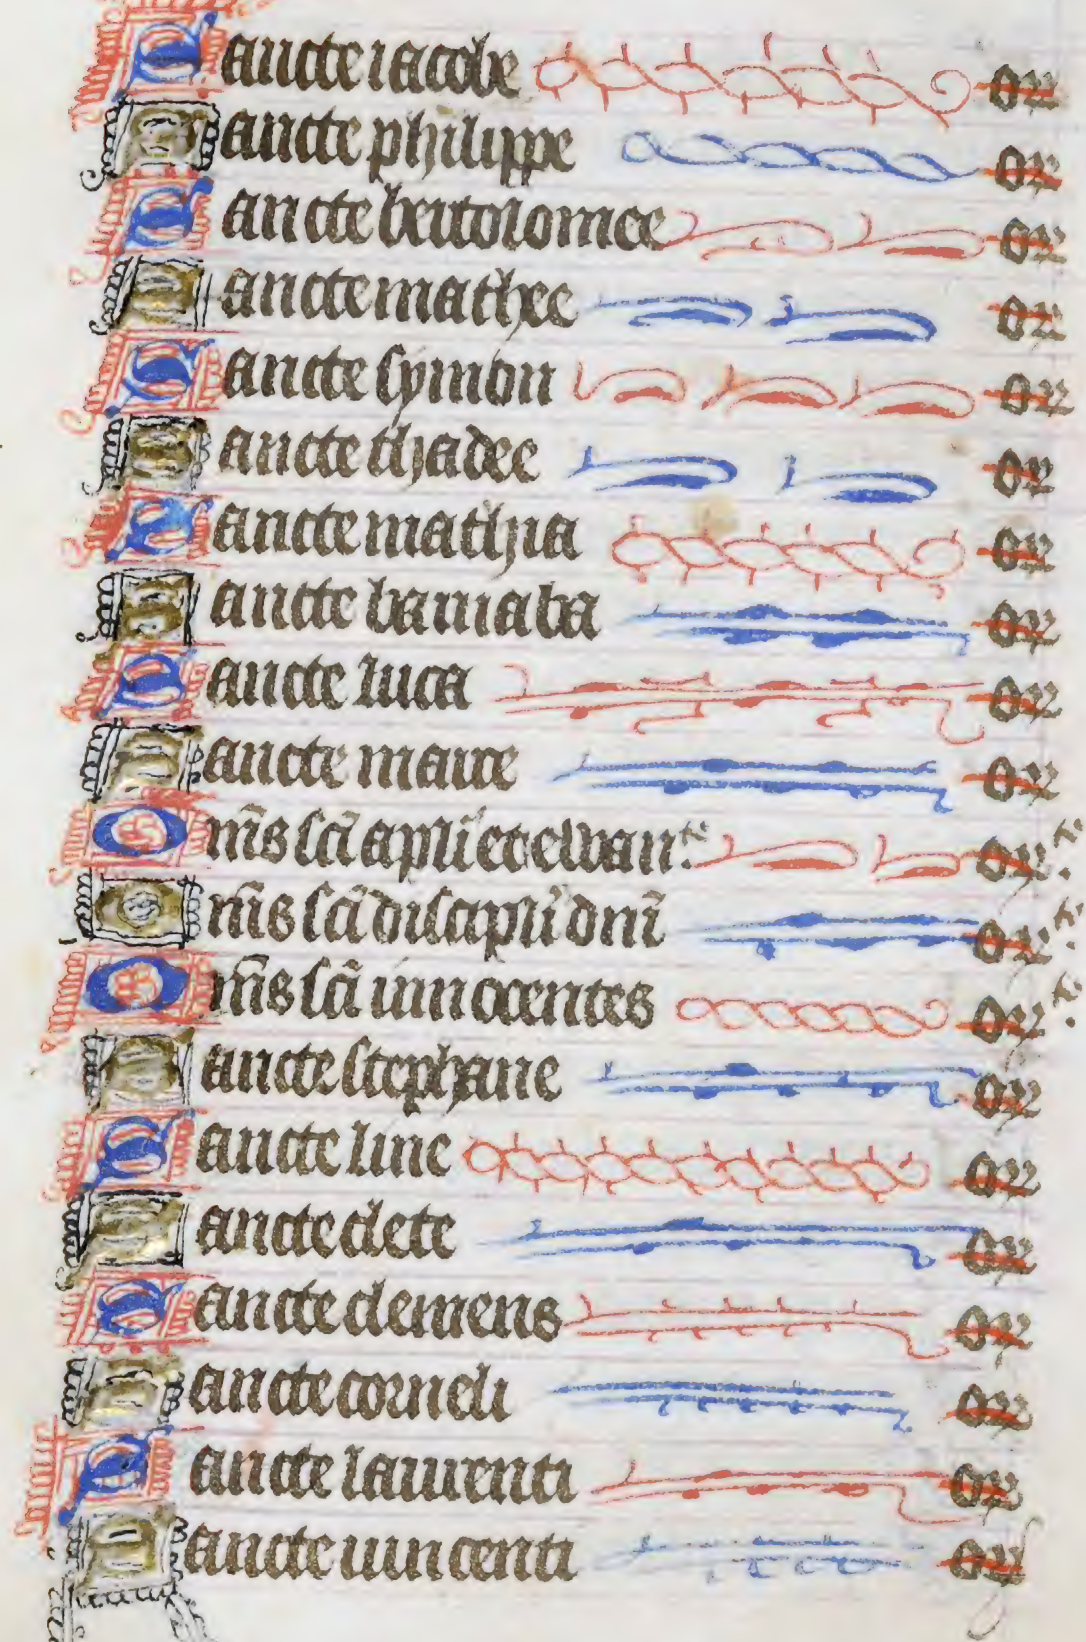 Sancte iacobe or
Sancte philippe or
Sancte bertolomee or
Sancte mathee or
Sancte symon or
Sancte thadee or
Sancte mathia or
Sancte barnaba or
Sancte luca or
Sancte marce or
Om̄s sc̄i apl̄i et ewan or
Om̄s sc̄i discipl̄i dn̄i or
Om̄s sc̄i innocentes or
Sancte stephane or
Sancte line or
Sancte clete or
Sancte clemens or
Sancte corneli or
Sancte laurenti or
Sancte uincenti or